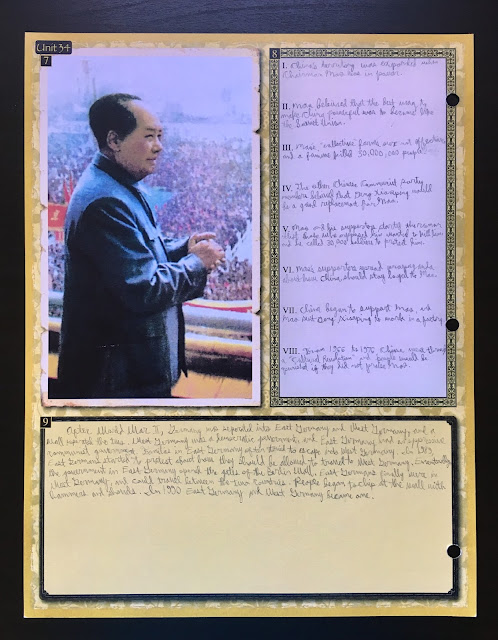 Unit 34
7
8
I. China's territory was expanded when
Chairman Mao rose in power.
II. Mao believed that the best way to
make China powerful was to become like
the Soviet Union.
III. Mao's "collective" farms ran out of
and a famine killed 30,000,000 people.
IV. The other Chinese Communist Party
members believed that Deng Xiaoping would
be a good replacement for Mao.
V. Mao and his supporters
that
and he called 30,000 to protect him.
VI. Mao's supporters spread
about how China should stay loyal to Mao.
VII. China began to support Mao, and
Mao sent Deng Xiaoping to work in a factory.
VIII. From 1966 to 1976 China went through
a "Cultural Revolution" and people would be
punished if they did not praise Mao.
9
After World War II, Germany was separated into East Germany and West Germany, and a
wall divided the two. West Germany was a democratic government, and East Germany was an oppressive
communist government. Families in East Germany often tried to escape into West Germany. In 1989,
East Germans started to protest about how they should be allowed to travel to West Germany. Eventually,
the government in East Germany opened the gates of the Berlin Wall. East Germans finally were in
West Germany, and could travel between the two countries. People began to chip at the wall with
hammers and shovels. In 1990 East Germany and West Germany became one.